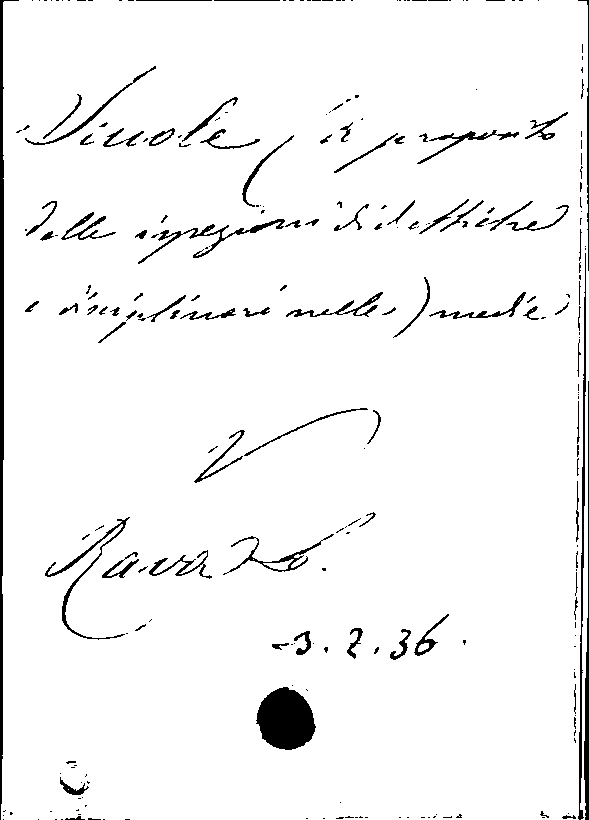 Scuole (A proposito
delle ispezioni didattiche
e disciplinari nelle) medie
V
Rava L.
3.2.36.